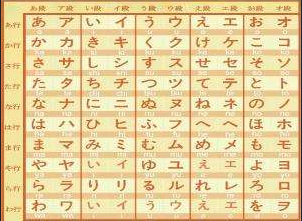 あ段 い段 う段 え段 お段
あ行 あ ア い イ う ウ え エ お オ
か行 か カ き キ く ク け ケ こ コ
さ行 さ サ し シ す ス せ セ そ ソ
た行 た タ ち チ つ ツ て テ と ト
な行 な ナ に ニ ぬ ヌ ね ネ の ノ
は行 は ハ ひ ヒ ふ フ へ ヘ ほ ホ
ま行 ま マ み ミ む ム め メ も モ
や行 や ヤ い イ ゆ ユ え エ よ ヨ
ら行 ら ラ り リ る ル れ レ ろ ロ
わ行 わ ワ い イ う ウ え エ を ヲ